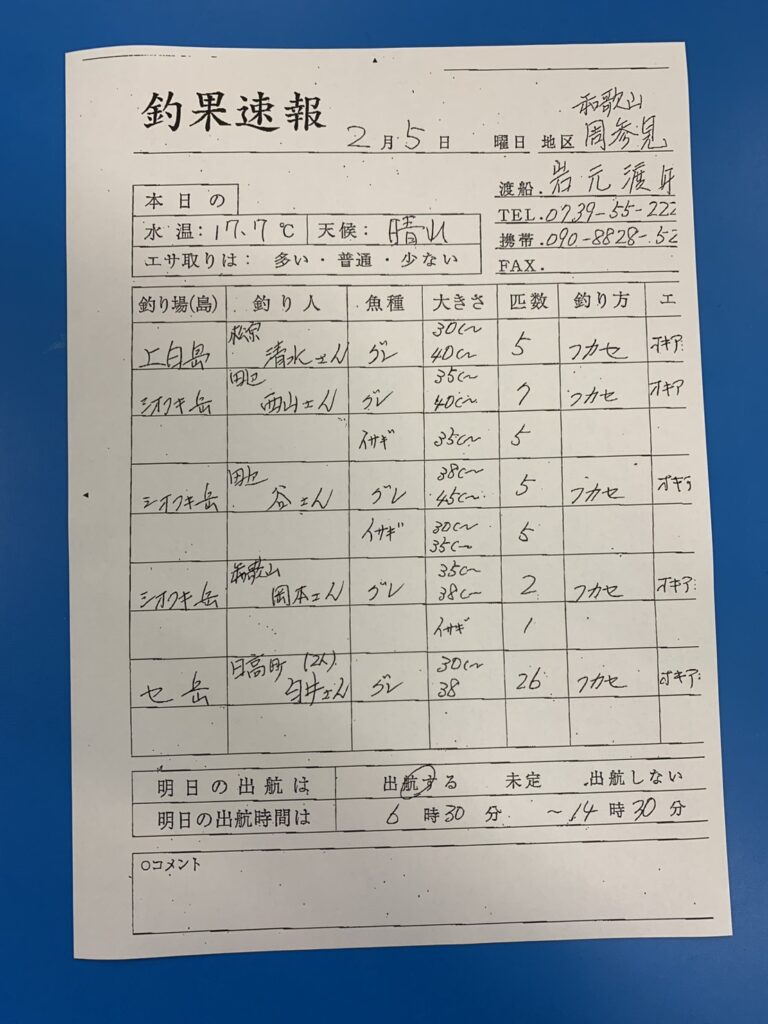 釣果速報
2月5日 曜日 地区 和歌山 周参見
渡船. 岩元渡
TEL.0739-55-222
携帯.090-8828-52
FAX.
本日の
水温:17.7℃ 天候: 晴れ
エサ取りは: 多い・普通・少ない
釣り場(島) 釣り人 魚種 大きさ 匹数 釣り方 エ
上白島 清水さん グレ 30㎝ 40㎝ 5 フカセ オキア
シオフキ岳 西山さん グレ 35㎝ 40㎝ 7 フカセ オキア
イサギ 35㎝ 5
シオフキ岳 谷さん グレ 38㎝ 45㎝ 5 フカセ オキア
イサギ 30㎝ 35㎝ 5
シオフキ岳 和歌山 岡本さん グレ 35㎝ 38㎝ 2 フカセ オキア
イサギ 1
セ岳 日高町 (2人) 臼井さん グレ 30㎝ 38 26 フカセ オキア
明日の出航は 出航する 未定 出航しない
明日の出航時間は 6時30分 ~14時30分
○コメント